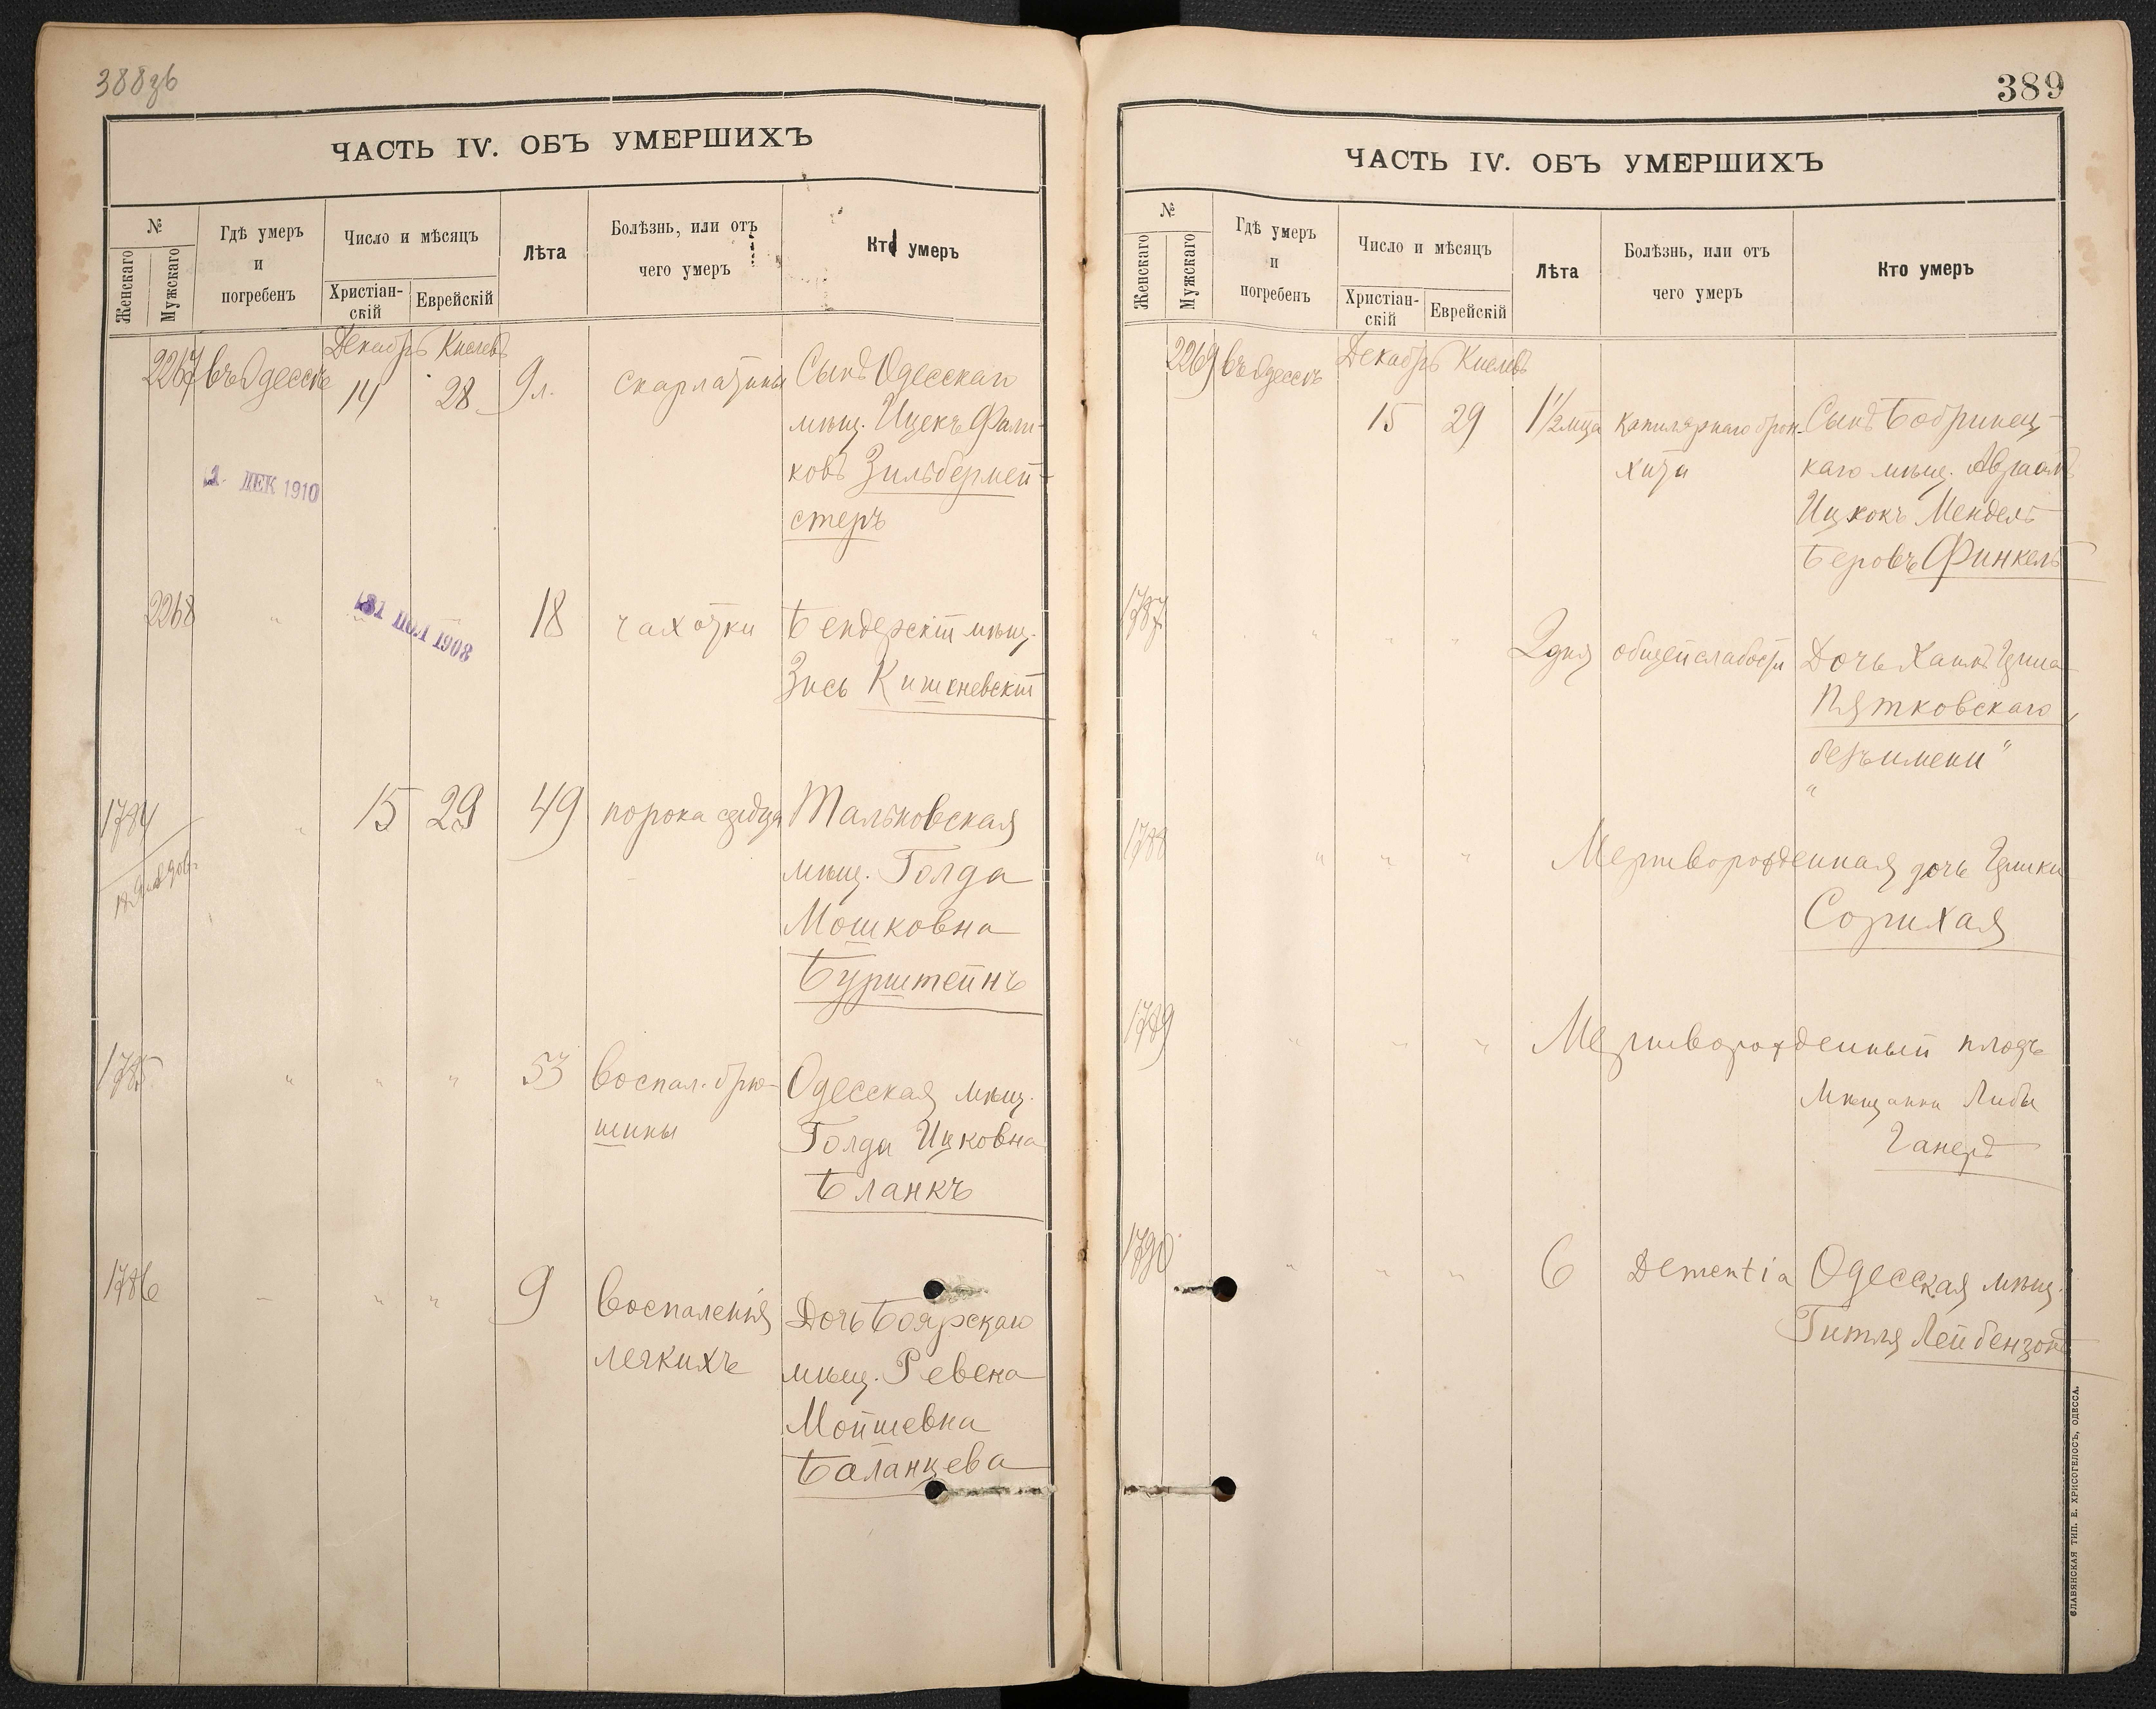 388зв
ЧАСТЬ IV. ОБЪ УМЕРШИХЪ
№
Женскаго
Мужскаго
Гдѣ умеръ
и
погребенъ
Число и мѣсяцъ
Христіан-
скій
Еврейскій
Лѣта
Болѣзнь, или отъ
чего умеръ
Кто умеръ
Декабрь Кислевъ
2267 въ Одессѣ 14 28 9 л. скарлатины Сынъ Одесскаго
мѣщ. Ицекъ Фали-
ковъ Зильбермей-
стеръ
ДЕК 1910
2268 " " 18 чахотки Бендерскій мѣщ.
Зись Кишеневскій
31 ІЮЛ 1908
1784 " 15 29 49 порока сердца Тальновская
мѣщ. Голда
Мошковна
Бурштейнъ
1785 " " " 53 воспал. брю-
шины
Одесская мѣщ.
Голда Ицковна
Бланкъ
1786 " " " 9 воспаленія
легкихъ
Дочь Боярскаго
мѣщ. Ревека
Мойшевна
Баланцева
389
ЧАСТЬ IV. ОБЪ УМЕРШИХЪ
№
Женскаго
Мужскаго
Гдѣ умеръ
и
погребенъ
Число и мѣсяцъ
Христіан-
скій
Еврейскій
Лѣта
Болѣзнь, или отъ
чего умеръ
Кто умеръ
Декабрь Кислевъ
2269 въ Одессѣ 15 29 1½ мца капилярнаго брон-
хита
Сынъ Бобринец-
каго мѣщ. Авраамъ
Ицхокъ Мендель
Беровъ Финкель
1787 " " " 2 дня общей слабости Дочь Хаимъ
Пятковскаго
"безъ имени"
1788 " " " Мертворожденная дочь
Сорихая
1789 " " " Мертворожденный плодъ
мѣщанки Либы
Ганеръ
1790 " " " 6 Dementia Одесская мѣщ.
Гитля Лейбензонъ
СЛАВЯНСКАЯ ТИП. Е. ХРИСОГЕЛОСЪ, ОДЕССА.